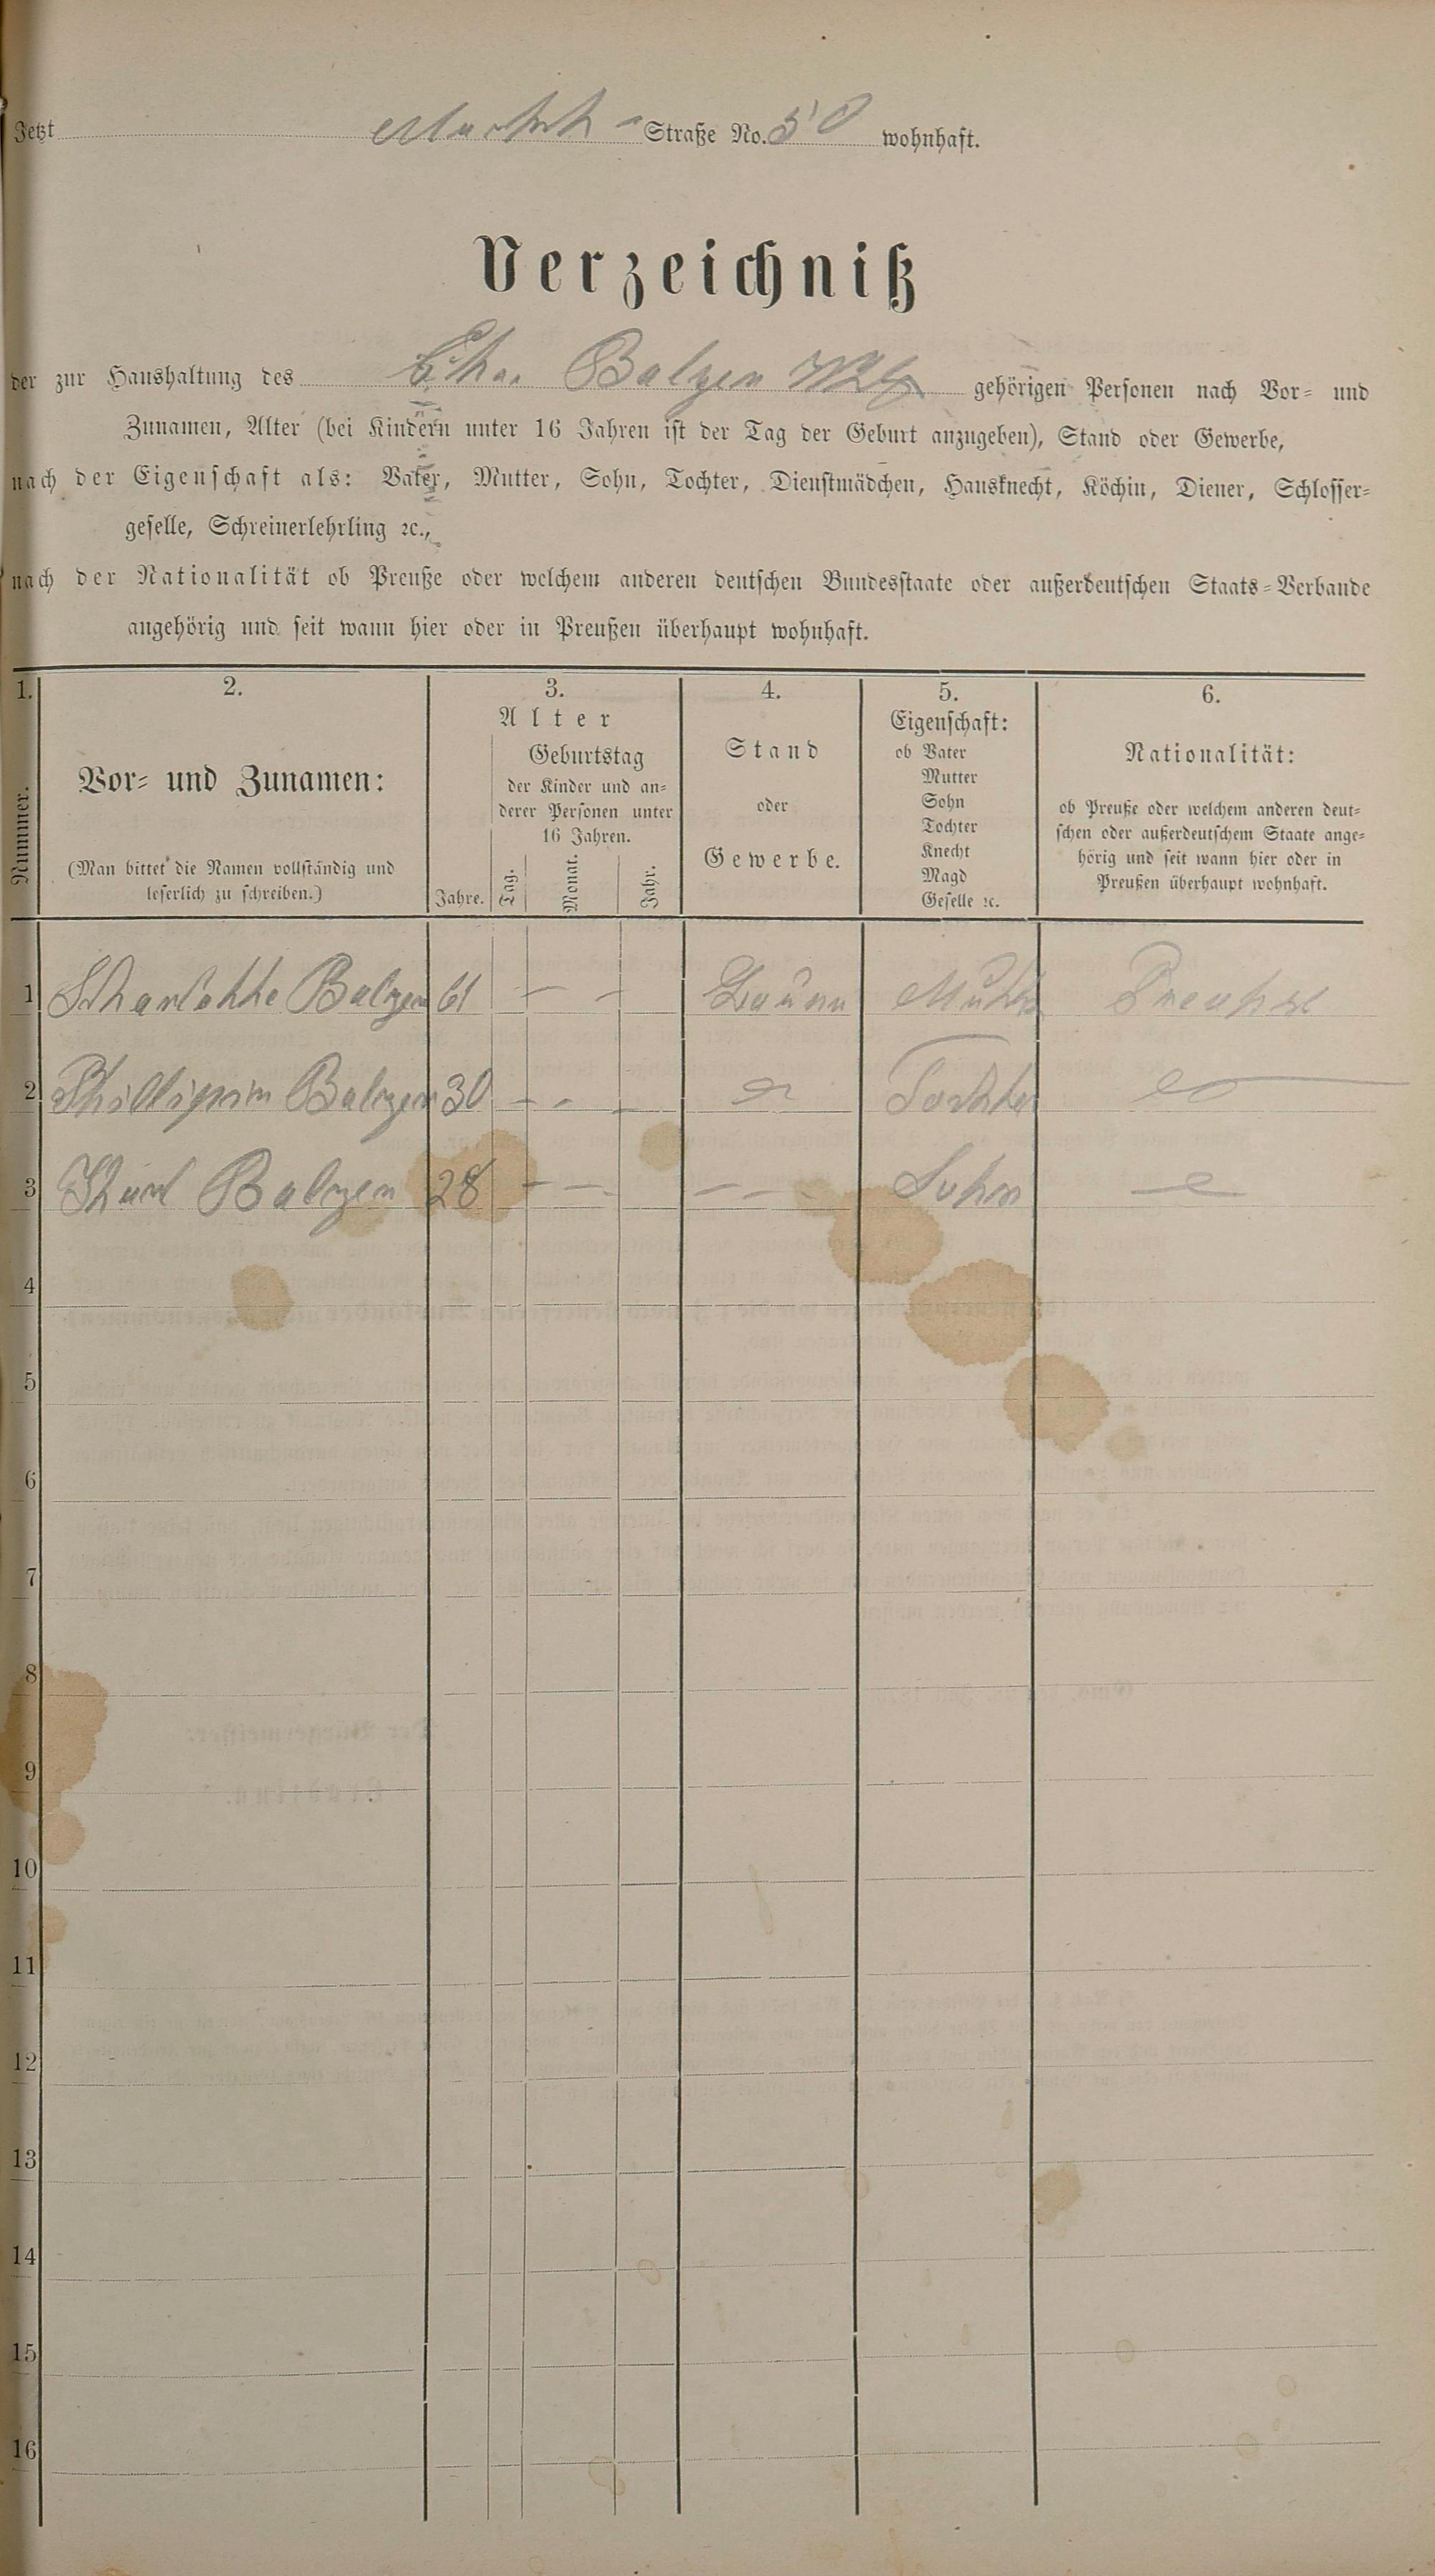 Jetzt Markt - Straße No. 50 wohnhaft.
Verzeichniß
der zur Haushaltung des Chr. Balzer gehörigen Personen nach Vor- und
Zunamen, Alter (bei Kindern unter 16 Jahren ist der Tag der Geburt anzugeben), Stand oder Gewerbe,
nach der Eigenschaft als: Vater, Mutter, Sohn, Tochter, Dienstmädchen, Hausknecht, Köchin, Diener, Schlosser-
geselle, Schreinerlehrling ꝛc.,
nach der Nationalität ob Preuße oder welchem anderen deutschen Bundesstaate oder außerdeutschen Staats-Verbande
angehörig und seit wann hier oder in Preußen überhaupt wohnhaft.
1. 2. 3. 4. 5. 6.
Nummer.
Vor- und Zunamen:
(Man bittet die Namen vollständig und
leserlich zu schreiben.)
Alter
Geburtstag
der Kinder und an-
derer Personen unter
16 Jahren.
Jahre. Tag. Monat. Jahr.
Stand
oder
Gewerbe.
Eigenschaft:
ob Vater
Mutter
Sohn
Tochter
Knecht
Magd
Geselle ꝛc.
Nationalität:
ob Preuße oder welchem anderen deut-
schen oder außerdeutschem Staate ange-
hörig und seit wann hier oder in
Preußen überhaupt wohnhaft.
1 Scharlotte Balzer 61 — — Mutter Preuße
2 Phillipin Balzer 30 - - - Tochter
3 Karl Balzer 28 — — — — Sohn
4
5
6
7
8
9
10
11
12
13
14
15
16